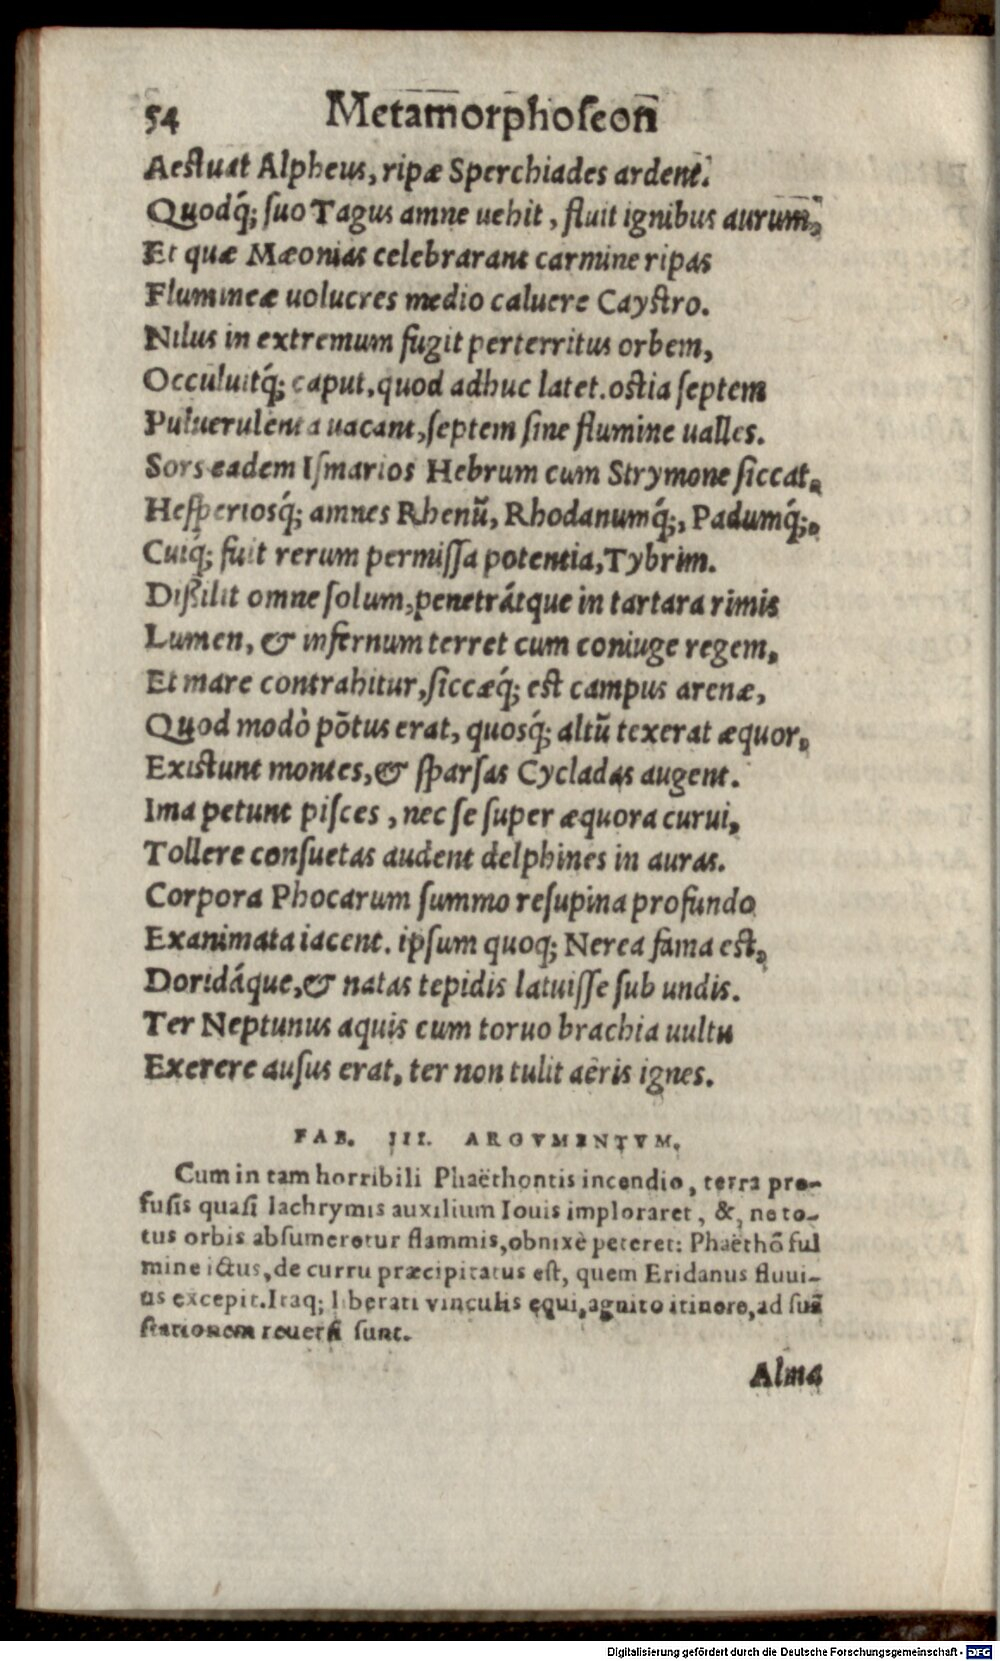 54 Metamorphoſeon
Aeſtuat Alpheus, ripæ Sperchiades ardent.
Quodq́; ſuo Tagus amne uehit, fluit ignibus aurum,
Et quæ Mæonias celebrarant carmine ripas
Flumineæ uolucres medio caluere Cayſtro.
Nilus in extremum fugit perterritus orbem,
Occuluitq́; caput, quod adhuc latet. oſtia ſeptem
Puluerulenta uacant, ſeptem ſine flumine ualles.
Sors eadem Iſmarios Hebrum cum Strymone ſiccat,
Heſperiosq́; amnes Rhenũ, Rhodanumq́;, Padumq́;,
Cuiq́; fuit rerum permiſſa potentia, Tybrim.
Dißilit omne ſolum, penetrátque in tartara rimis
Lumen, & infernum terret cum coniuge regem,
Et mare contrahitur, ſiccæq́; eſt campus arenæ,
Quod modò põtus erat, quosq́; altũ texerat æquor,
Exiſtunt montes, & ſparſas Cycladas augent.
Ima petunt piſces, nec ſe ſuper æquora curui,
Tollere conſuetas audent delphines in auras.
Corpora Phocarum ſummo reſupina profundo
Exanimata iacent. ipſum quoq; Nerea fama eſt,
Doridáque, & natas tepidis latuiſſe ſub undis.
Ter Neptunus aquis cum toruo brachia uultu
Exerere auſus erat, ter non tulit aëris ignes.
FAB. III. ARGVMENTVM.
Cum in tam horribili Phaëthontis incendio, terra pro-
fuſis quaſi lachrymis auxilium Iouis imploraret, &, ne to-
tus orbis abſumeretur flammis, obnixè peteret: Phaëthõ ful
mine ictus, de curru præcipitatus eſt, quem Eridanus fluui-
us excepit. Itaq; liberati vinculis equi, agnito itinere, ad ſuã
ſtationem reuerſi ſunt.
Alma
Digitalisierung gefördert durch die Deutsche Forschungsgemeinschaft - DFG